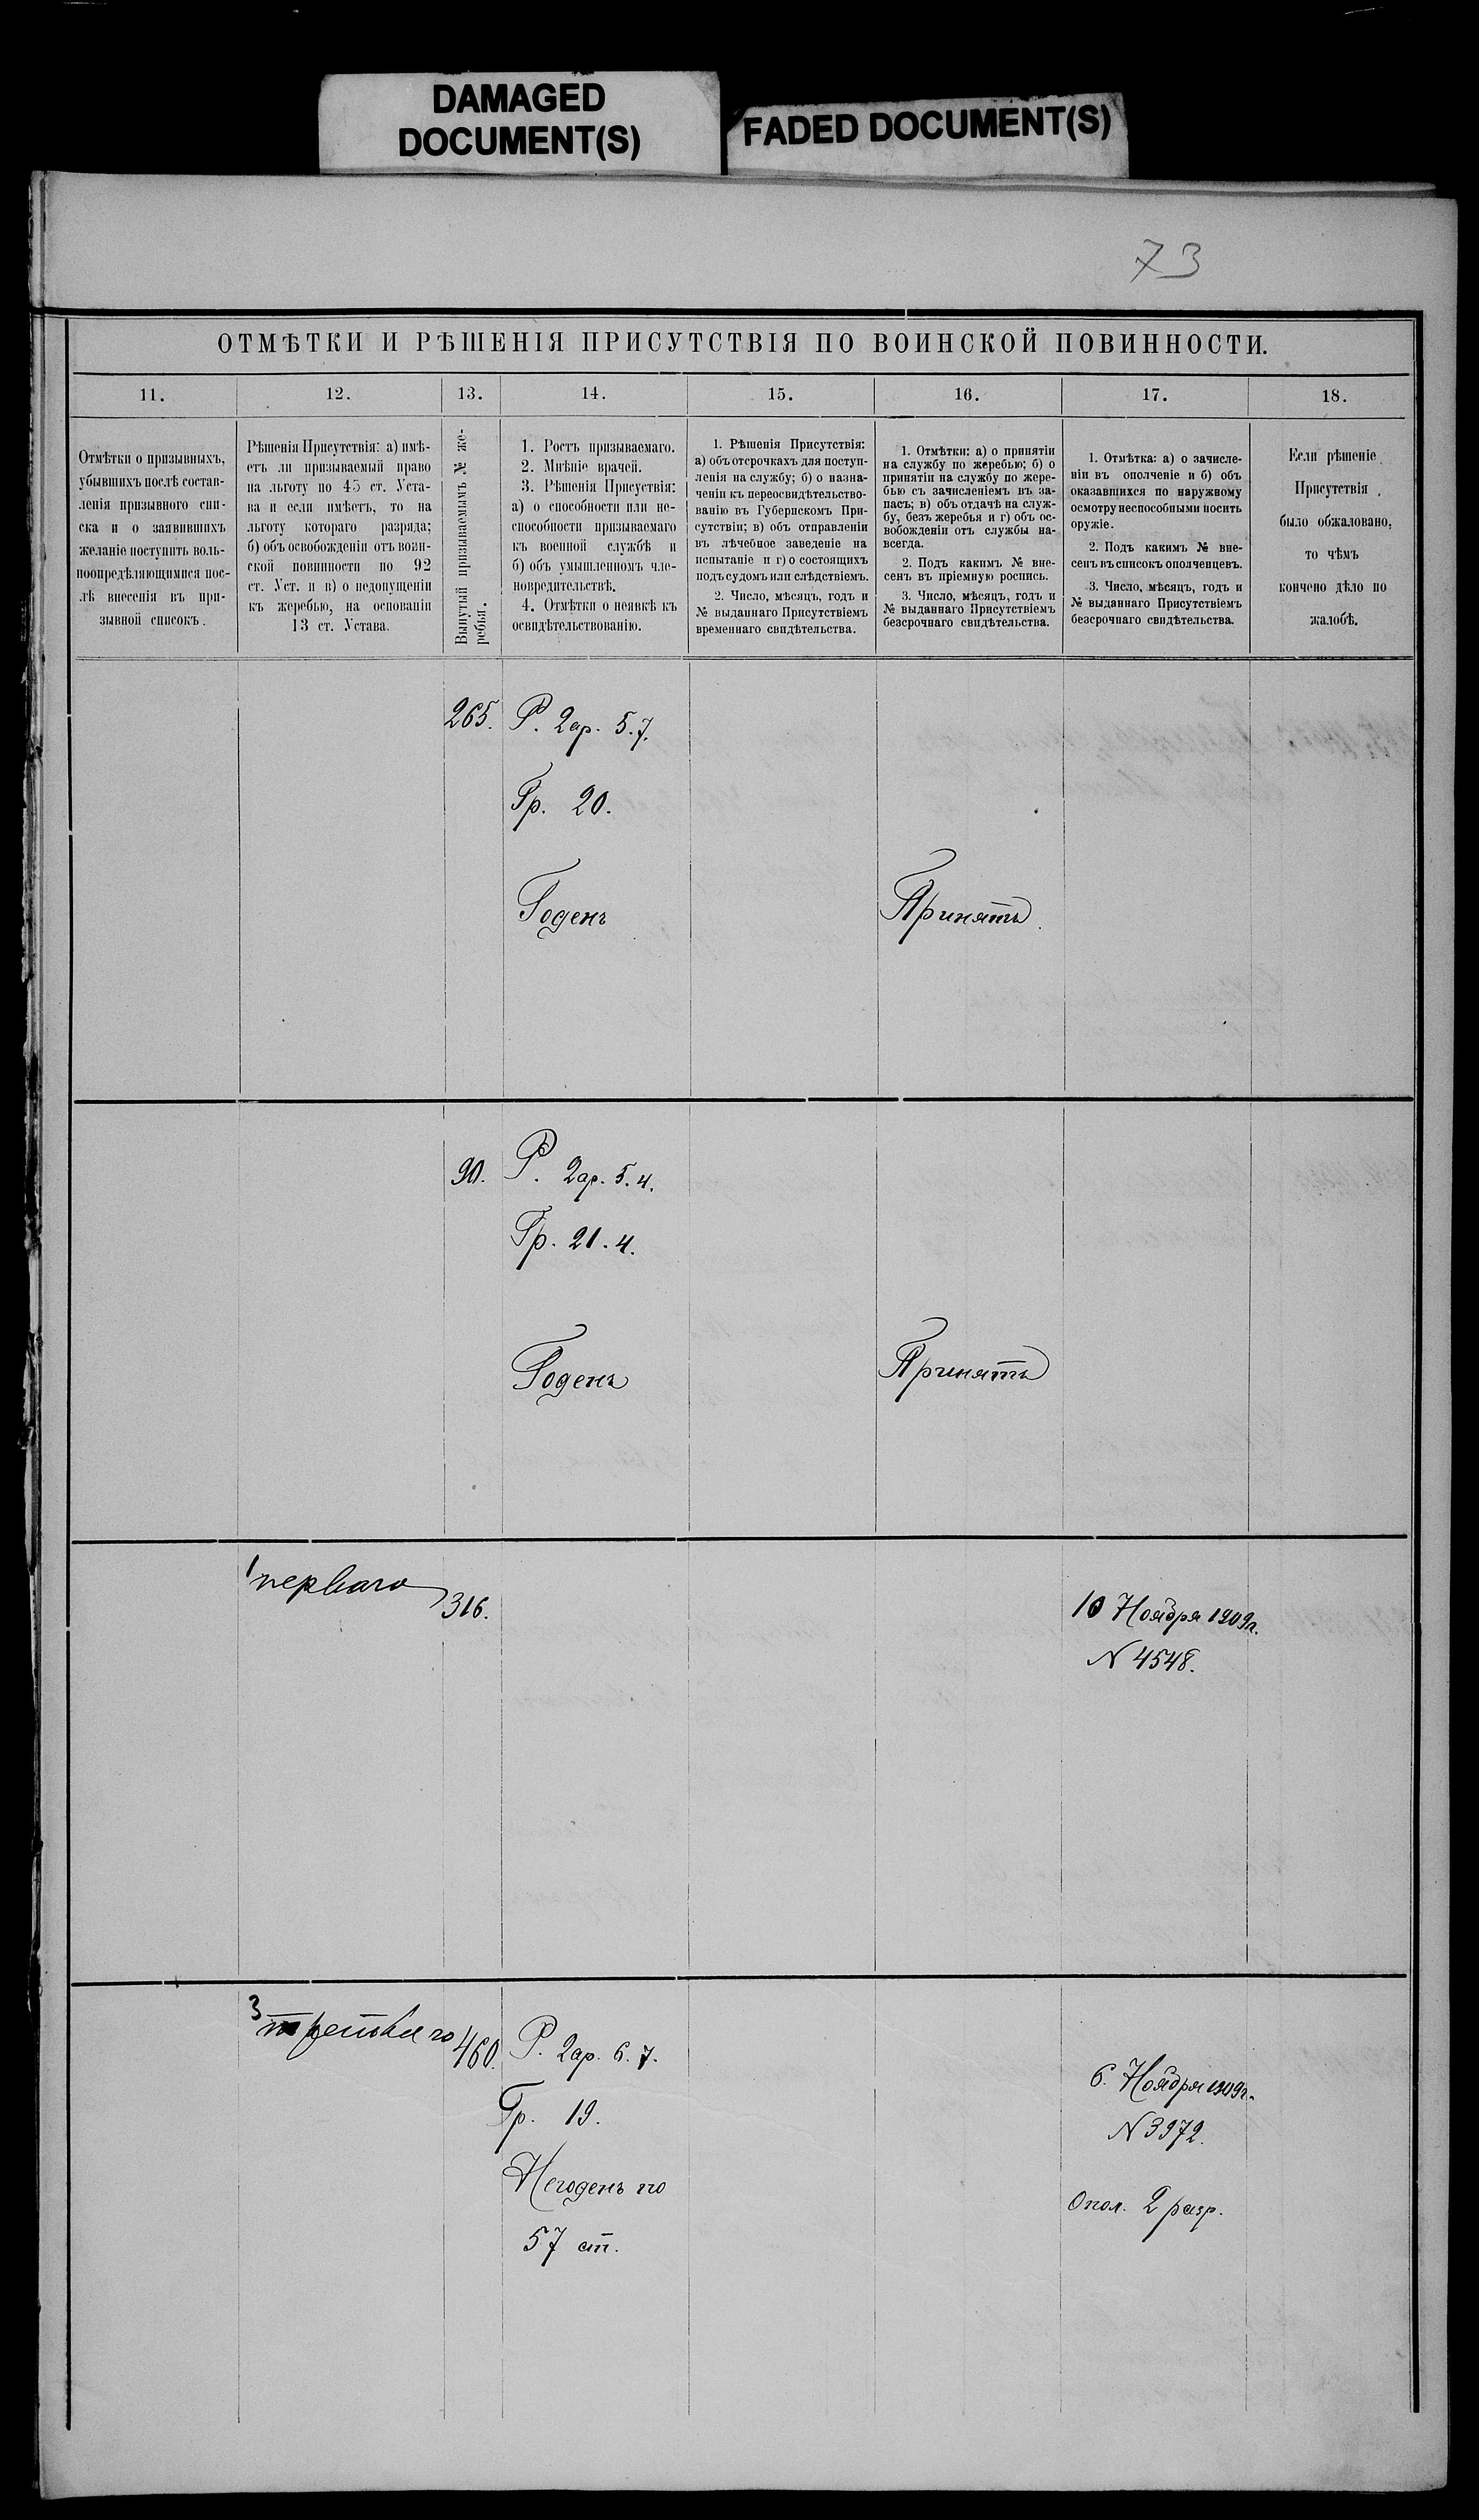 DAMAGED
DOCUMENT(S)
FADED DOCUMENT(S)
73
ОТМѢТКИ И РѢШЕНІЯ ПРИСУТСТВІЯ ПО ВОИНСКОЙ ПОВИННОСТИ.
11.
12.
13.
14.
15.
16.
17.
18.
Отмѣтки о призывныхъ,
убывшихъ послѣ состав-
ленія призывного спи-
ска и о заявившихъ
желаніе поступить воль-
ноопредѣляющимися пос-
лѣ внесенія въ при-
зывной списокъ.
Рѣшенія Присутствія: а) имѣ-
етъ ли призываемый право
на льготу по 45 ст. Уста-
ва и если имѣетъ, то на
льготу котораго разряда;
б) объ освобожденіи отъ воин-
ской повинности по 92
ст. Уст. и в) о недопущеніи
къ жеребью, на основаніи
13 ст. Устава.
Вынутый призываемымъ № же-
ребья.
1. Ростъ призываемаго.
2. Мнѣніе врачей.
3. Рѣшенія Присуствія:
а) о способности или не-
способности призываемаго
къ военной службѣ и
б) объ умышленномъ чле-
новредительствѣ.
4. Отмѣтки о неявкѣ къ
освидѣтельствованію.
1. Рѣшенія Присутствія:
а) объ отсрочкахъ для поступ-
ленія на службу; б) о назна-
ченіи къ переосвидѣтельство-
ванію въ Губернскомъ При-
сутствіи; в) объ отправленіи
въ лѣчебное заведеніе на
испытаніе и г) о состоящихъ
подъ судомъ или слѣдствіемъ.
2. Число, мѣсяцъ, годъ и
№ выданнаго Присутствіемъ
временнаго свидѣтельства.
1. Отмѣтки: а) о принятіи
на службу по жеребью; б) о
принятіи на службу по жере-
бью съ зачисленіемъ въ за-
пасъ; в) объ отдачѣ на служ-
бу, безъ жеребья и г) объ ос-
вобожденіи отъ службы на-
всегда.
2. Подъ какимъ № вне-
сенъ въ пріемную роспись.
3. Число, мѣсяцъ, годъ и
№ выданнаго Присутствіемъ
безсрочнаго свидѣтельства.
1. Отмѣтка: а) о зачисле-
ніи въ ополченіе и б) объ
оказавшихся по наружному
осмотру неспособными носить
оружіе.
2. Подъ какимъ № вне-
сенъ въ списокъ ополченцевъ.
3. Число, мѣсяцъ, годъ и
№ выданнаго Присутствіемъ
безсрочнаго свидѣтельства.
Если рѣшеніе
Присутствія
было обжаловано,
то чѣмъ
кончено дѣло по
жалобѣ.
265. Р. 2ар. 5.7.
Гр. 20.
Годенъ
Принятъ
90. Р. 2ар. 5.4.
Гр. 21.4.
Годенъ
Принятъ
1 перваго
316.
10 Ноября 1909г.
N 4548.
3
третьяго
460. Р. 2ар. 6.7.
Гр. 19.
Негоденъ по
57 ст.
6. Ноября 1909г.
N 3972.
Опол. 2 разр.